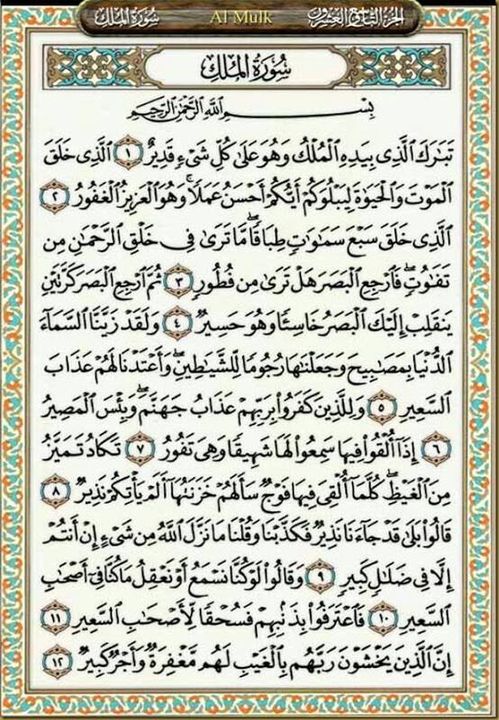 سُورَةُ المُلْكِ Al Mulk الجزء التاسع والعشرون
سُورَةُ المُلْكِ
بِسْمِ اللَّهِ الرَّحْمَٰنِ الرَّحِيمِ
تَبَارَكَ الَّذِي بِيَدِهِ الْمُلْكُ وَهُوَ عَلَىٰ كُلِّ شَيْءٍ قَدِيرٌ ١ الَّذِي خَلَقَ
الْمَوْتَ وَالْحَيَوٰةَ لِيَبْلُوَكُمْ أَيُّكُمْ أَحْسَنُ عَمَلًا ۚ وَهُوَ الْعَزِيزُ الْغَفُورُ ٢
الَّذِي خَلَقَ سَبْعَ سَمَٰوَٰتٍ طِبَاقًا ۖ مَّا تَرَىٰ فِي خَلْقِ الرَّحْمَٰنِ مِن
تَفَٰوُتٍ ۖ فَارْجِعِ الْبَصَرَ هَلْ تَرَىٰ مِن فُطُورٍ ٣ ثُمَّ ارْجِعِ الْبَصَرَ كَرَّتَيْنِ
يَنقَلِبْ إِلَيْكَ الْبَصَرُ خَاسِئًا وَهُوَ حَسِيرٌ ٤ وَلَقَدْ زَيَّنَّا السَّمَآءَ
الدُّنْيَا بِمَصَٰبِيحَ وَجَعَلْنَٰهَا رُجُومًا لِّلشَّيَٰطِينِ ۖ وَأَعْتَدْنَا لَهُمْ عَذَابَ
السَّعِيرِ ٥ وَلِلَّذِينَ كَفَرُوا بِرَبِّهِمْ عَذَابُ جَهَنَّمَ ۖ وَبِئْسَ الْمَصِيرُ
٦ إِذَآ أُلْقُوا فِيهَا سَمِعُوا لَهَا شَهِيقًا وَهِيَ تَفُورُ ٧ تَكَادُ تَمَيَّزُ
مِنَ الْغَيْظِ ۖ كُلَّمَآ أُلْقِيَ فِيهَا فَوْجٌ سَأَلَهُمْ خَزَنَتُهَآ أَلَمْ يَأْتِكُمْ نَذِيرٌ ٨
قَالُوا بَلَىٰ قَدْ جَآءَنَا نَذِيرٌ فَكَذَّبْنَا وَقُلْنَا مَا نَزَّلَ اللَّهُ مِن شَيْءٍ إِنْ أَنتُمْ
إِلَّا فِي ضَلَٰلٍ كَبِيرٍ ٩ وَقَالُوا لَوْ كُنَّا نَسْمَعُ أَوْ نَعْقِلُ مَا كُنَّا فِيٓ أَصْحَٰبِ
السَّعِيرِ ١٠ فَاعْتَرَفُوا بِذَنۢبِهِمْ فَسُحْقًا لِّأَصْحَٰبِ السَّعِيرِ ١١
إِنَّ الَّذِينَ يَخْشَوْنَ رَبَّهُم بِالْغَيْبِ لَهُم مَّغْفِرَةٌ وَأَجْرٌ كَبِيرٌ ١٢